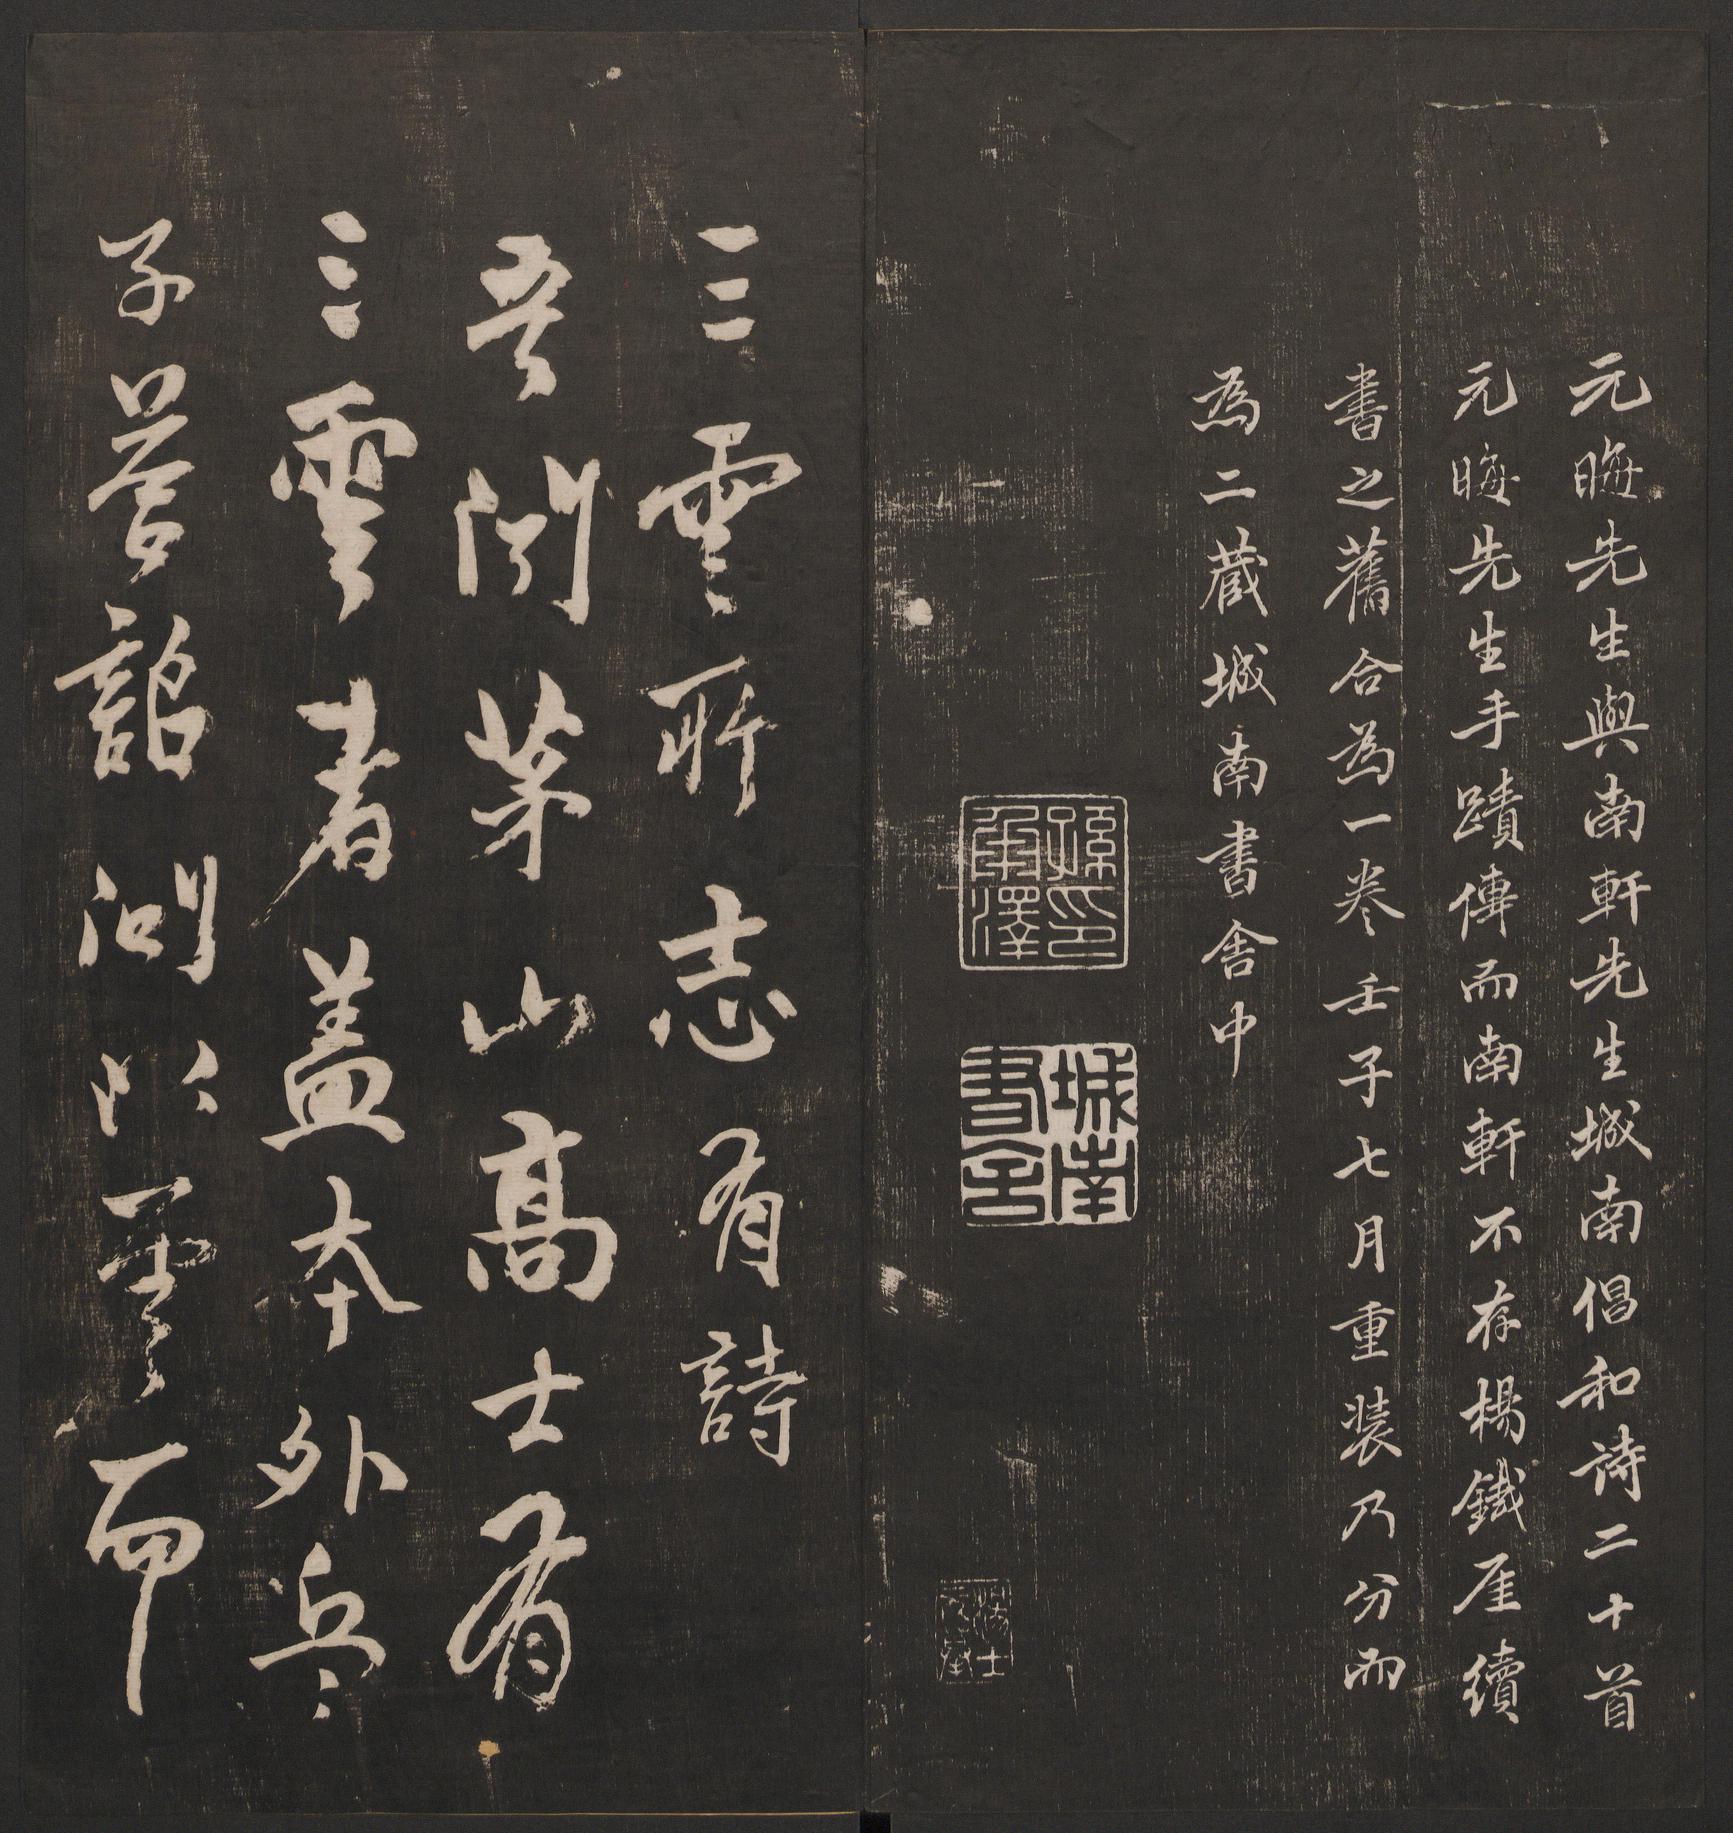 元晦先生與南軒先生城南倡和诗二十首
元晦先生手蹟傳而南軒不存楊鐵厓續
書之舊合為一卷壬子七月重裝乃分而
為二藏城南書舍中
孫印承澤
城南書舍
三雲所志有詩
吾聞茅山高士有
三雲者蓋本外兵
子英韶潤以雲而